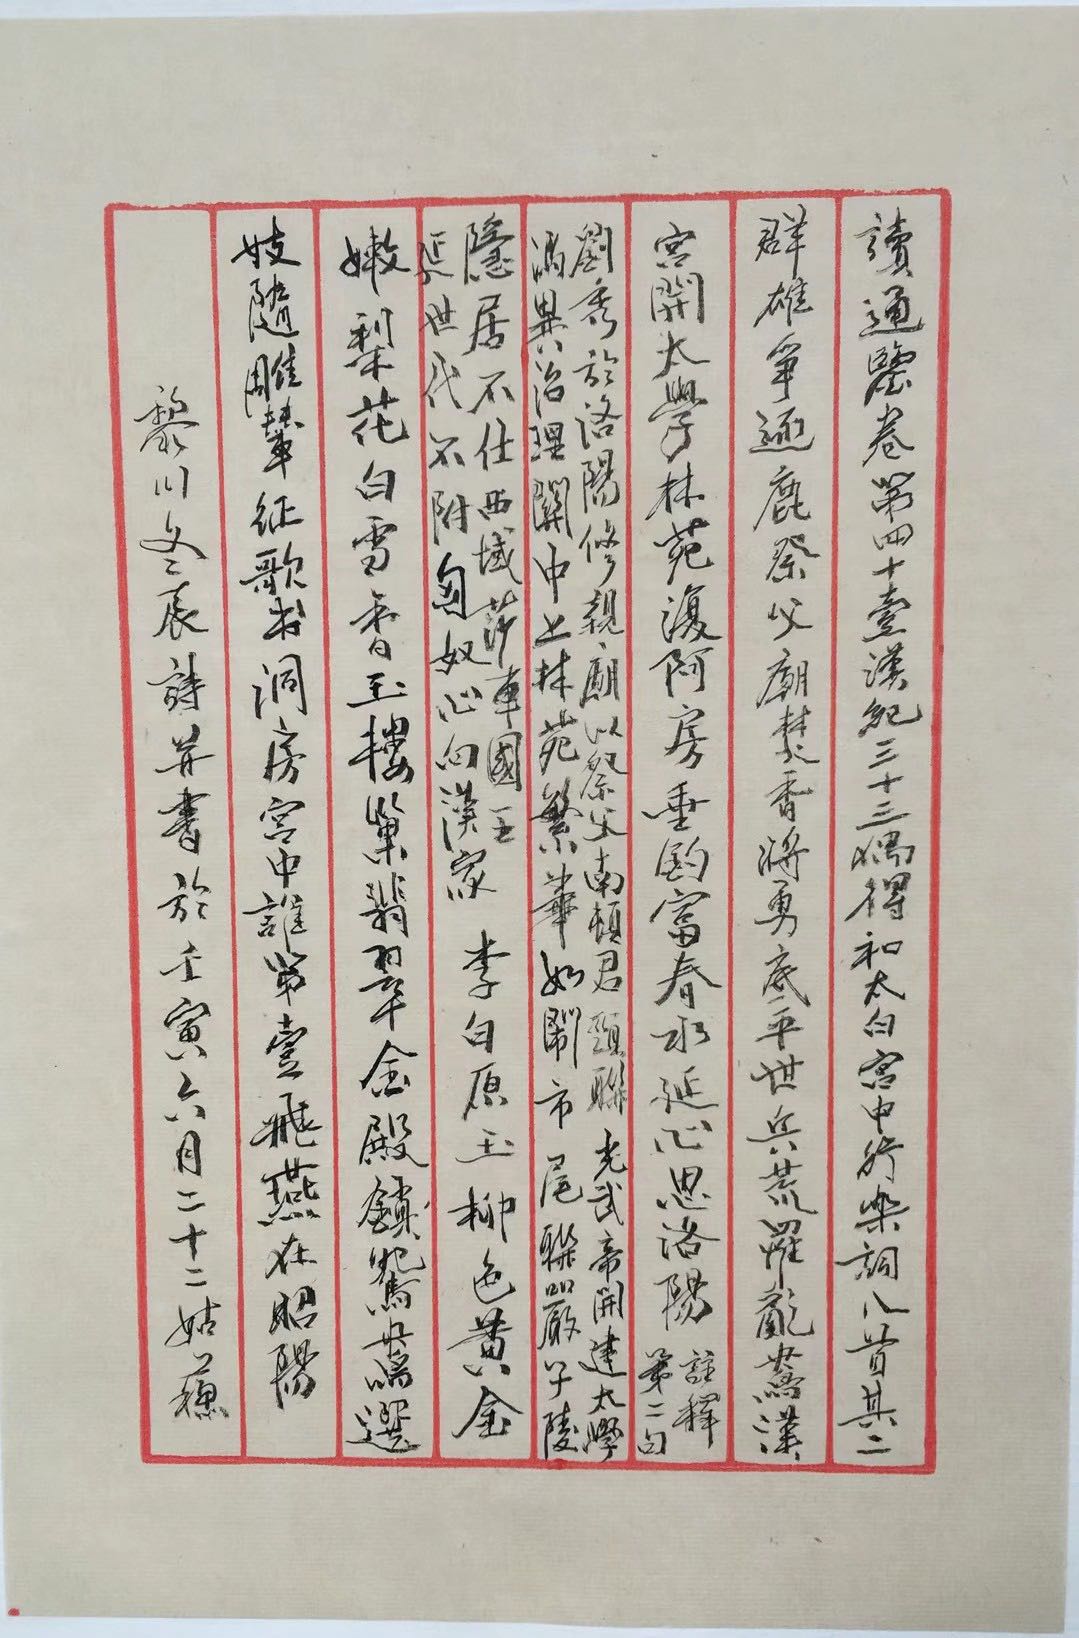 讀通鑒卷第四十壹漢紀三十三偶得和太白宮中行樂詞八首其二
群雄爭逐鹿祭父廟焚香將勇底平世兵荒罹亂蕪漢
宮開太學林苑復阿房垂釣富春水延心思洛陽 註釋
第二句
劉秀於洛陽修親廟以祭父南頓君頸聯 光武帝開建太學
馮異治理關中上林苑繁華如鬧市 尾聯嚴子陵
隱居不仕西域莎車國王
延世代不附匈奴心向漢家 李白原玉 柳色黃金
嫩梨花白雪香玉樓巢翡翠金殿鎖鴛鴦選
妓隨雕輦征歌出洞房宮中誰第壹飛燕在昭陽
黎川冬辰詩并書於壬寅六月二十二姑蘇